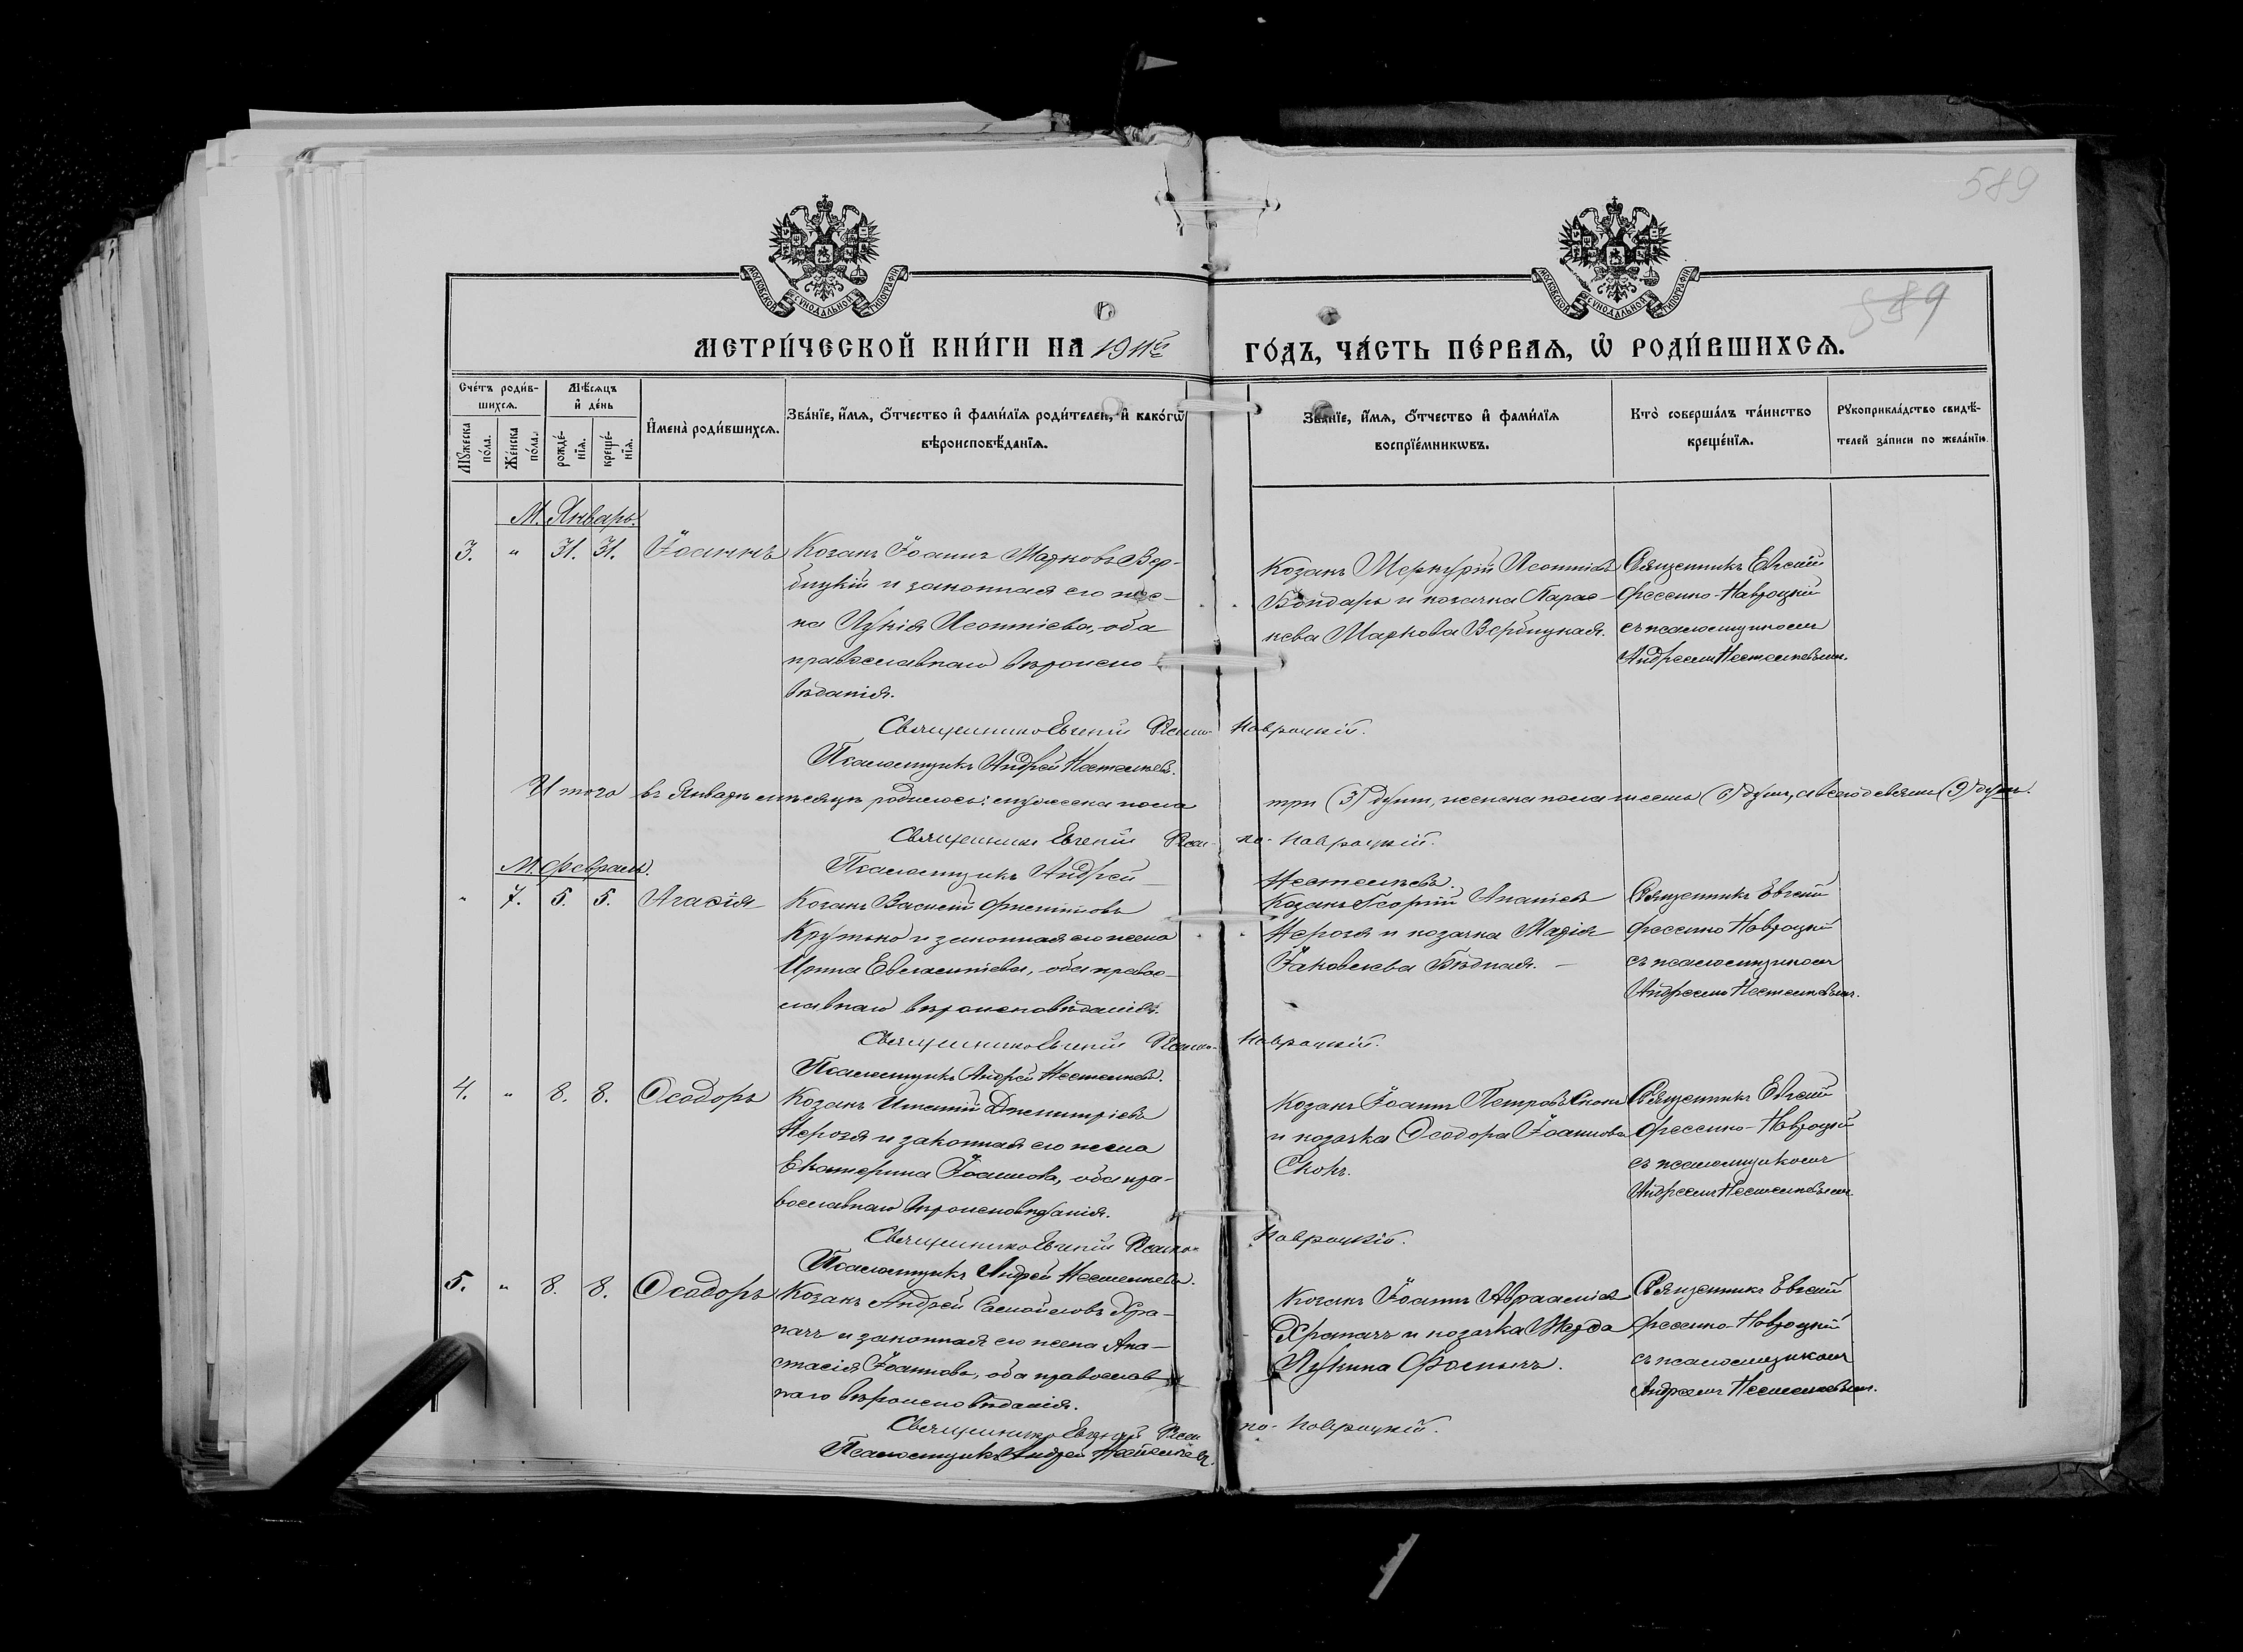 589
МОСКОВСКОЙ СУНОДАЛЬНОЙ ТИПОГРАФІИ
МОСКОВСКОЙ СУНОДАЛЬНОЙ ТИПОГРАФІИ
589
МЕТРИ́ЧЕСКОЙ КНИ́ГИ НА 1911й
ГО́ДЪ, ЧА́СТЬ ПЕ́РВАѦ, Ѡ РОДИ́ВШИХСѦ.
Сче́тъ роди́в-
шихсѧ.
Мꙋжеска по́ла.
Же́нска по́ла.
Мѣ́сѧцъ
и҆ де́нь
рожде́-
нїѧ.
креще́-
нїѧ.
И҆мена̀ роди́вшихсѧ.
Зва́нїе, и҆́мѧ, ѻ҆́тчество и҆ фами́лїѧ роди́телей, и҆ како́гѡ
вѣроисповѣ́данїѧ.
Зва́нїе, и҆́мѧ, ѻ҆́тчество и҆ фами́лїѧ
воспрїе́мникѡвъ.
Кто̀ соверша́лъ та́инство
креще́нїѧ.
Рꙋкоприкла́дство свидѣ́-
телей за́писи по жела́нїю.
М. Январь.
3. „ 31. 31. Іоаннъ
Козакъ Іоаннъ Марковъ Вер-
бицкій и законная его же-
на Лукія Леонтіева, оба
православнаго вѣроиспо-
вѣданія.
Козакъ Меркурій Леонтіевъ
Бондарь и козачка Парас-
кева Маркова Вербицкая.
Священникъ Евгеній
Фесенко-Навроцкій
съ псаломщикомъ
Андреемъ
Священникъ Евгеній Фесенко-Навроцкій.
Псаломщикъ Андрей
Итого въ Январѣ мѣсяцѣ родилось: мужеска пола три (3) души, женска пола шесть (6) душъ, а всего девять (9) душъ.
Священникъ Евгеній Фесенко-Навроцкій.
Псаломщикъ Андрей
М. Февраль.
„ 7. 5. 5. Агафія
Козакъ Василій
Крутько и законная его жена
Ирина Евлампіева, оба правос-
лавнаго вѣроисповѣданія.
Козакъ Георгій Ананіевъ
Нерозя и козачка Марія
Іаковлева Бѣдная.
Священникъ Евгеній
Фесенко Навроцкій
съ псаломщикомъ
Андреемъ
Священникъ Евгеній Фесенко-Навроцкій.
Псаломщикъ Андрей
4. „ 8. 8. Ѳеодоръ
Козакъ Игнатій Димитріевъ
Нерозя и законная его жена
Екатерина Іоаннова, оба пра-
вославнаго вѣроисповѣданія.
Козакъ Іоаннъ Петровъ Скокъ
и козачка Ѳеодора Іоаннова
Скокъ.
Священникъ Евгеній
Фесенко-Навроцкій
съ псаломщикомъ
Андреемъ
Священникъ Евгеній Фесенко-Навроцкій.
Псаломщикъ Андрей
5. „ 8. 8. Ѳеодоръ
Козакъ Андрей Самойловъ Хра-
пачъ и законная его жена Ана-
стасія Іоаннова, оба православ
наго вѣроисповѣданія.
Козакъ Іоаннъ Аврааміевъ
Храпачъ и козачка
Лукина
Священникъ Евгеній
Фесенко-Навроцкій
съ псаломщикомъ
Андреемъ
Священникъ Евгеній Фесенко-Навроцкій.
Псаломщикъ Андрей